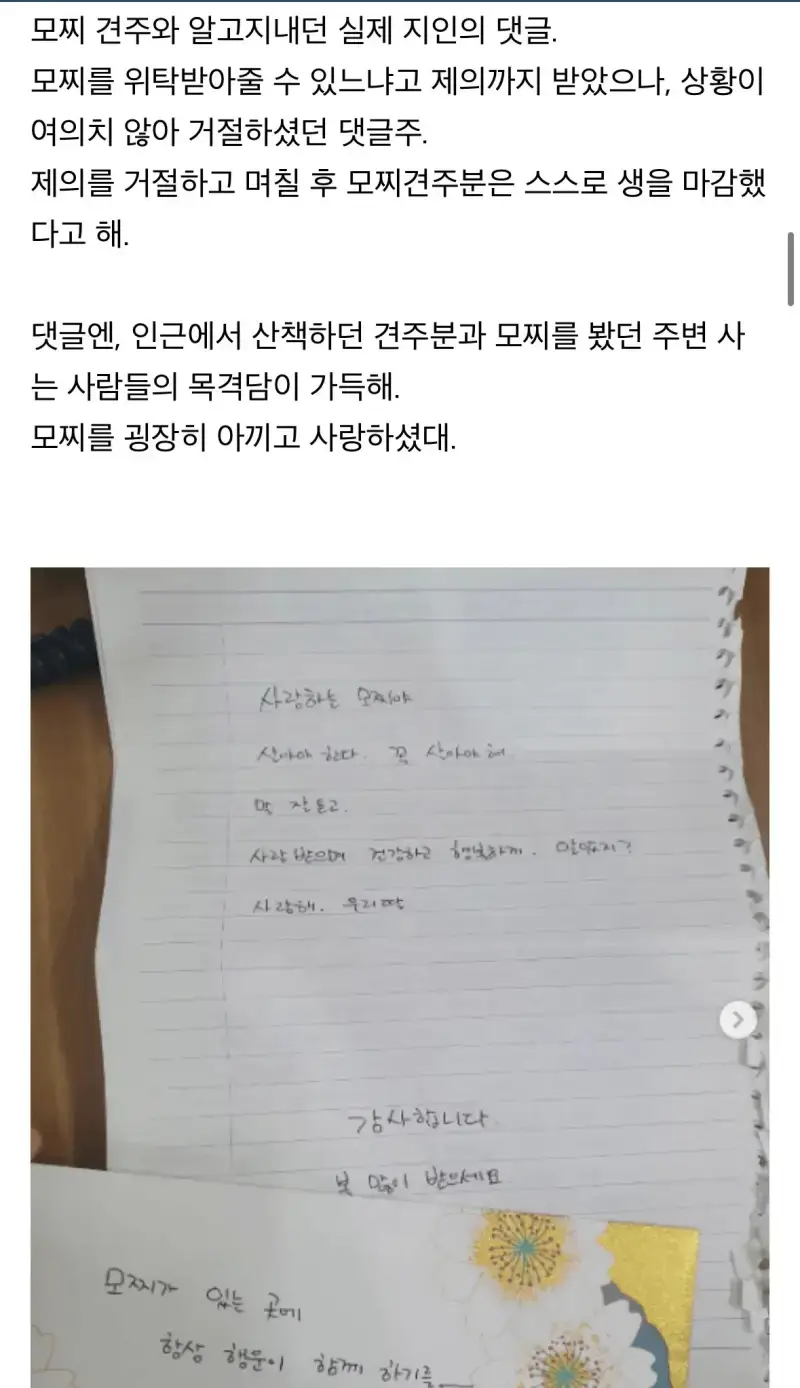 모찌 견주와 알고지내던 실제 지인의 댓글.
모찌를 위탁받아줄 수 있느냐고 제의까지 받았으나, 상황이
여의치 않아 거절하셨던 댓글주.
제의를 거절하고 며칠 후 모찌견주분은 스스로 생을 마감했
다고 해.
댓글엔, 인근에서 산책하던 견주분과 모찌를 봤던 주변 사
는 사람들의 목격담이 가득해.
모찌를 굉장히 아끼고 사랑하셨대.
사랑하는 모찌야
살아야 한다. 꼭 살아야 해
밥 잘 먹고.
사랑 받으며 건강하고 행복하게. 알았지?
사랑해. 우리딸
감사합니다
복 많이 받으세요
모찌가 있는 곳에
항상 행운이 함께 하기를